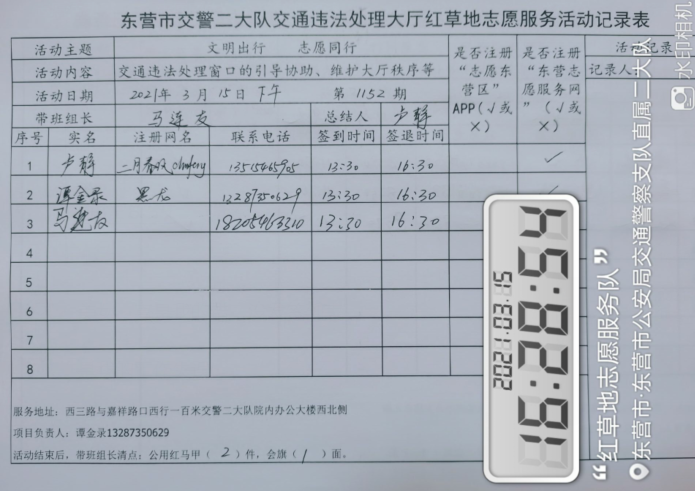 东营市交警二大队交通违法处理大厅红草地志愿服务活动记录表
活动主题 文明出行 志愿同行 是否注册“志愿东营区”APP（√或×） 是否注册“东营志愿服务网”（√或×） 活动记录
活动内容 交通违法处理窗口的引导协助、维护大厅秩序等 记录人
活动日期 2021年 3月 15日 下午 第 1152 期
带班组长 马连友 总结人 卢静
序号 实名 注册网名 联系电话 签到时间 签退时间
1 卢静 二月春 13:30 16:30 ✓
2 谭金录 黑龙 13287350629 13:30 16:30
3 马连友 18205463310 13:30 16:30
4
5
6
7
8
服务地址：西三路与嘉祥路口西行一百米交警二大队院内办公大楼西北侧
项目负责人：谭金录13287350629
活动结束后，带班组长清点：公用红马甲（ 2 ）件，会旗（ 1 ）面。
2021.03.15
16:28:54
“红草地志愿服务队”
东营市·东营市公安局交通警察支队直属二大队
水印相机